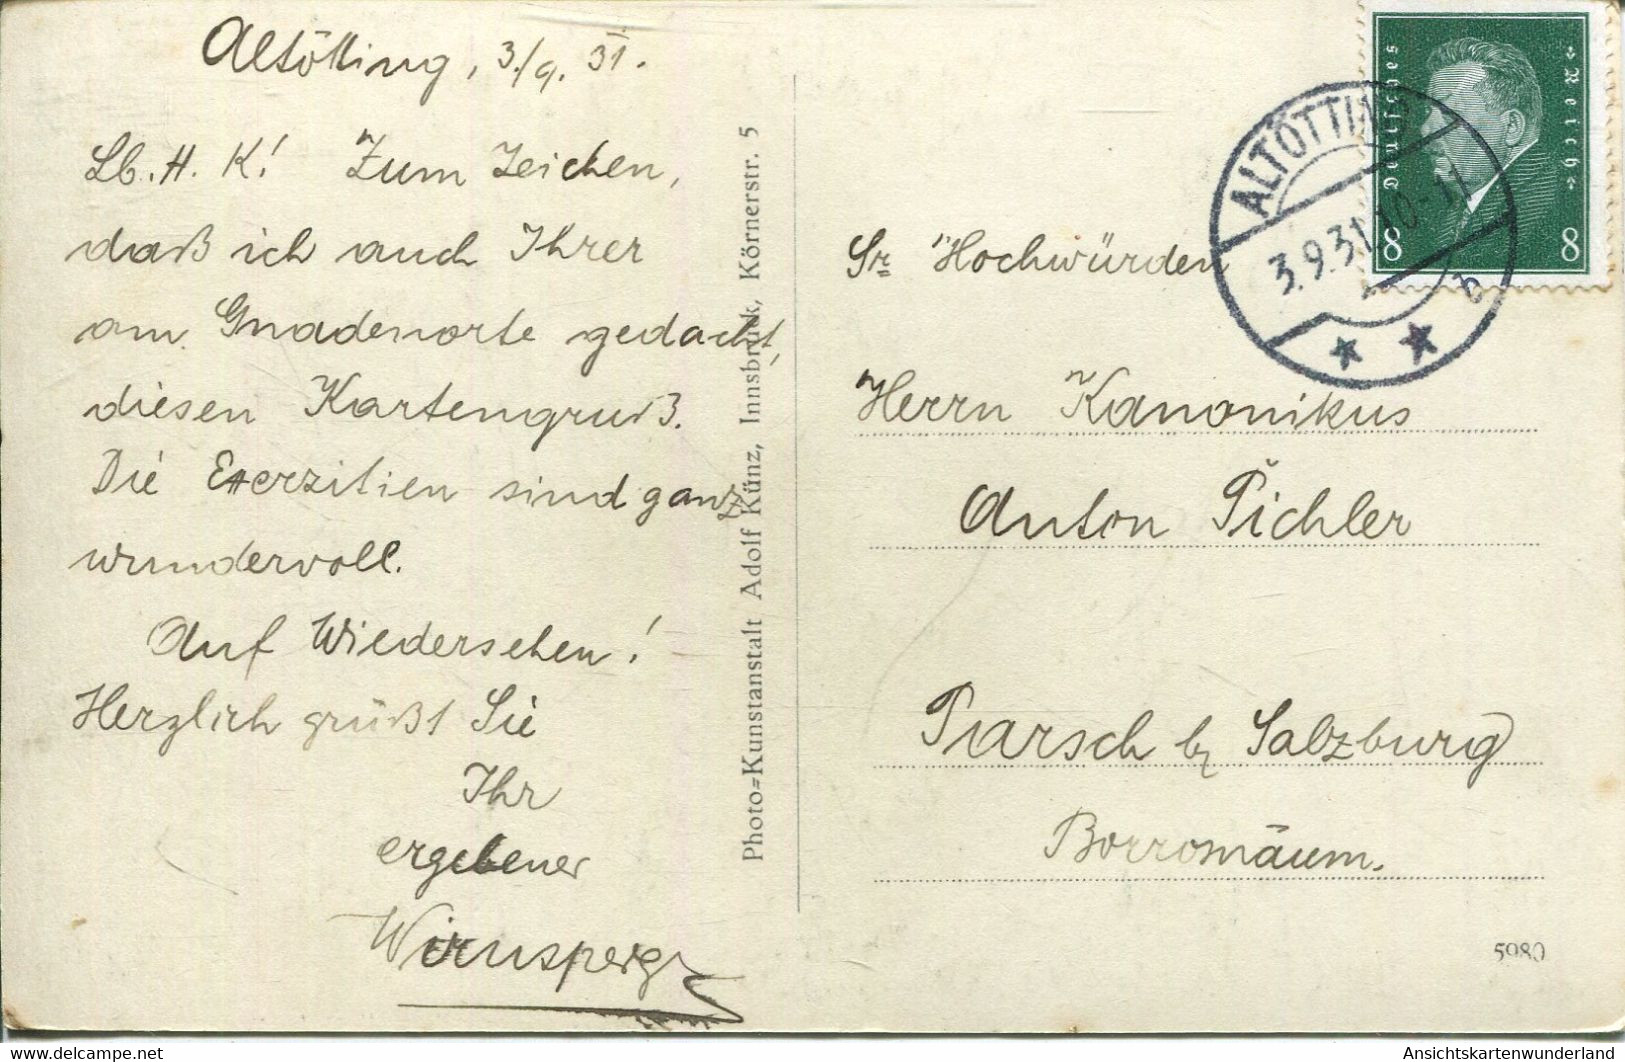 Altötting, 3./9. 31.
Lb. H. K! Zum Zeichen,
daß ich auch Ihrer
am Gnadenorte gedacht,
diesen Kartengruß.
Die Exerzitien sind ganz
wundervoll.
Auf Wiedersehen!
Herzlich grüßt Sie
Ihr
ergebener
Photo=Kunstanstalt Adolf Künz, Innsbruck, Körnerstr. 5
Deutsches Reich
8 8
ALTÖTTING
3.9.31.10-11
b
Sr Hochwürden
Herrn Kanonikus
Anton Pichler
Parsch b/ Salzburg
Borromäum.
5980
www.ansichtskartenwunderland.com
AnsichtskartenWunderland